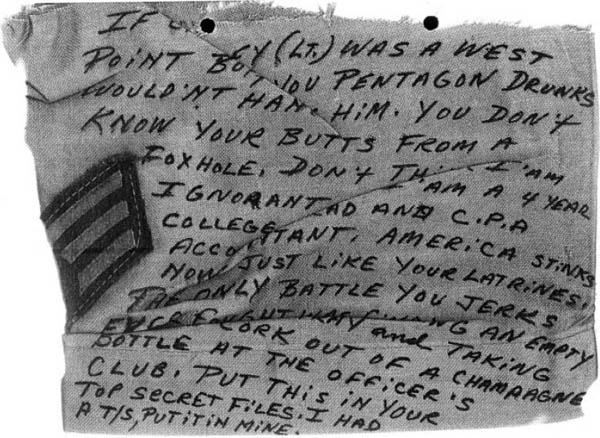 IF (LT.) WAS A WEST
POINT BOY YOU PENTAGON DRUNKS
WOULD'NT HIM. YOU DON'T
KNOW YOUR BUTTS FROM A
FOXHOLE. DON'T I'AM
IGNORANT I'AM A 4 YEAR
COLLEGE AND C.P.A
ACCOUNTANT. AMERICA STINKS
NOW JUST LIKE YOUR LATRINES.
THE ONLY BATTLE YOU JERKS
EVER AN EMPTY
BOTTLE CORK OUT OF A CHAMPAGNE and TAKING
AT THE OFFICER'S
CLUB. PUT THIS IN YOUR
TOP SECRET FILES. I HAD
A T/S, PUT IT IN MINE.